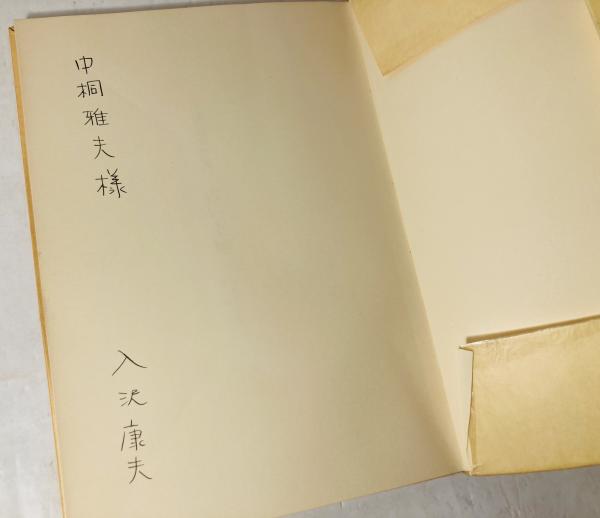 中桐雅夫様
入沢康夫